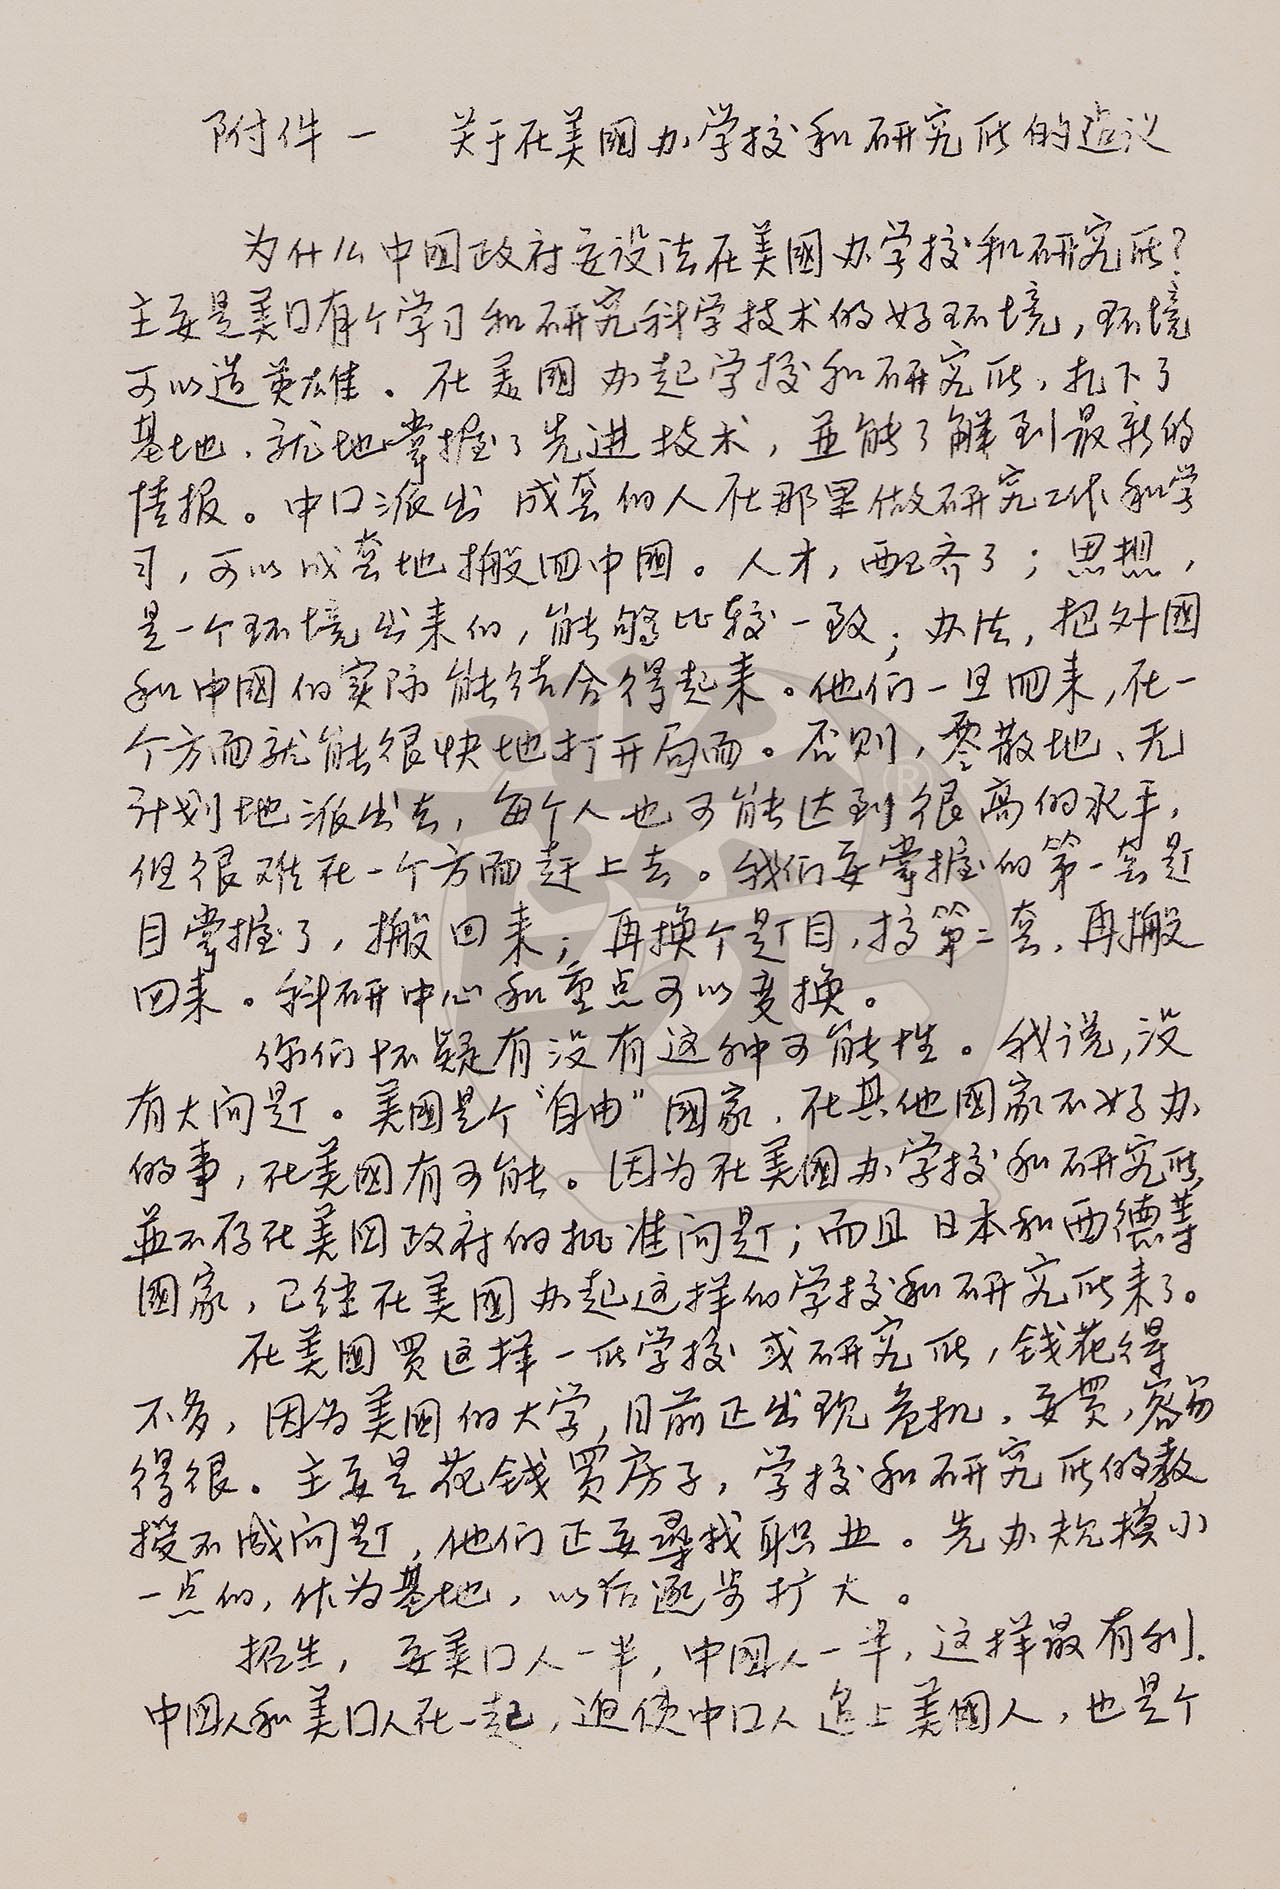 附件一 关于在美國办学校和研究所的造议
为什么中國政府要设法在美國办学校和研究所？
主要是美口有个学习和研究科学技术的好环境，环境
可以造英雄。在美國办起学校和研究所，扎下了
基地，就地掌握了先进技术，並能了解到最新的
情报。中口派出成套的人在那里做研究工作和学
习，可以成套地搬回中國。人才，配齐了；思想，
是一个环境出来的，能够比较一致；办法，把外國
和中國的实际能结合得起来。他们一旦回来，在一
个方面就能很快地打开局面。否则，零散地、无
计划地派出去，每个人也可能达到很高的水平，
但很难在一个方面赶上去。我们要掌握的第一套题
目掌握了，搬回来；再换个题目，搞第二套，再搬
回来。科研中心和重点可以变换。
你们怀疑有没有这种可能性。我说，没
有大问题。美國是个“自由”國家，在其他國家不好办
的事，在美國有可能。因为在美國办学校和研究所，
並不存在美国政府的批准问题；而且日本和西德等
國家，已经在美國办起这样的学校和研究所来了。
在美國買这样一所学校或研究所，钱花得
不多，因为美國的大学，目前正出现危机，要買，容易
得很。主要是花钱買房子，学校和研究所的教
授不成问题，他们正要尋找职业。先办规模小
一点的，作为基地，以后逐步扩大。
招生，要美口人一半，中國人一半，这样最有利。
中國人和美口人在一起，迫使中口人追上美國人，也是个